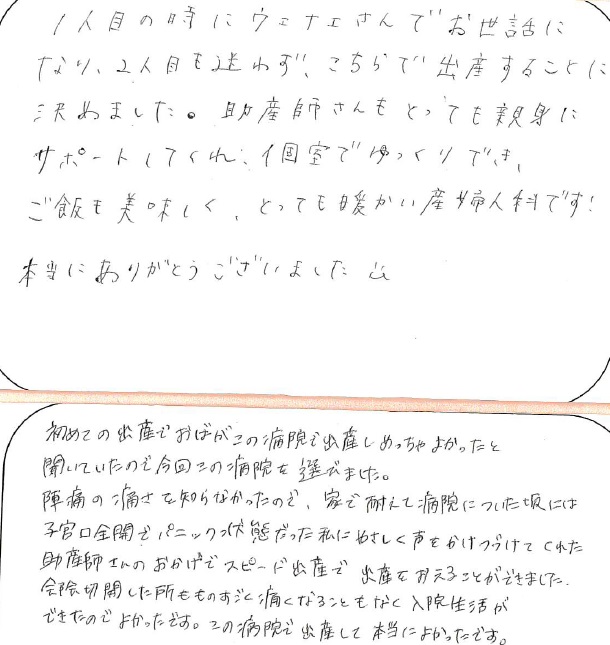 1人目の時にウェナエさんでお世話に
なり、2人目も迷わず、こちらで出産することに
決めました。助産師さんもとっても親身に
サポートしてくれ、個室でゆっくりでき、
ご飯も美味しく、とっても暖かい産婦人科です!
本当にありがとうございました
初めての出産でおばがこの病院で出産しめっちゃよかったと
聞いていたので今回この病院を選びました。
陣痛の痛さを知らなかったので、家で耐えて病院についた頃には
子宮口全開でパニック状態だった私にやさしく声をかけつづけてくれた
助産師さんのおかげでスピード出産で出産をおえることができました.
会陰切開した所もものすごく痛くなることもなく入院生活が
できたのでよかったです。この病院で出産して本当によかったです。